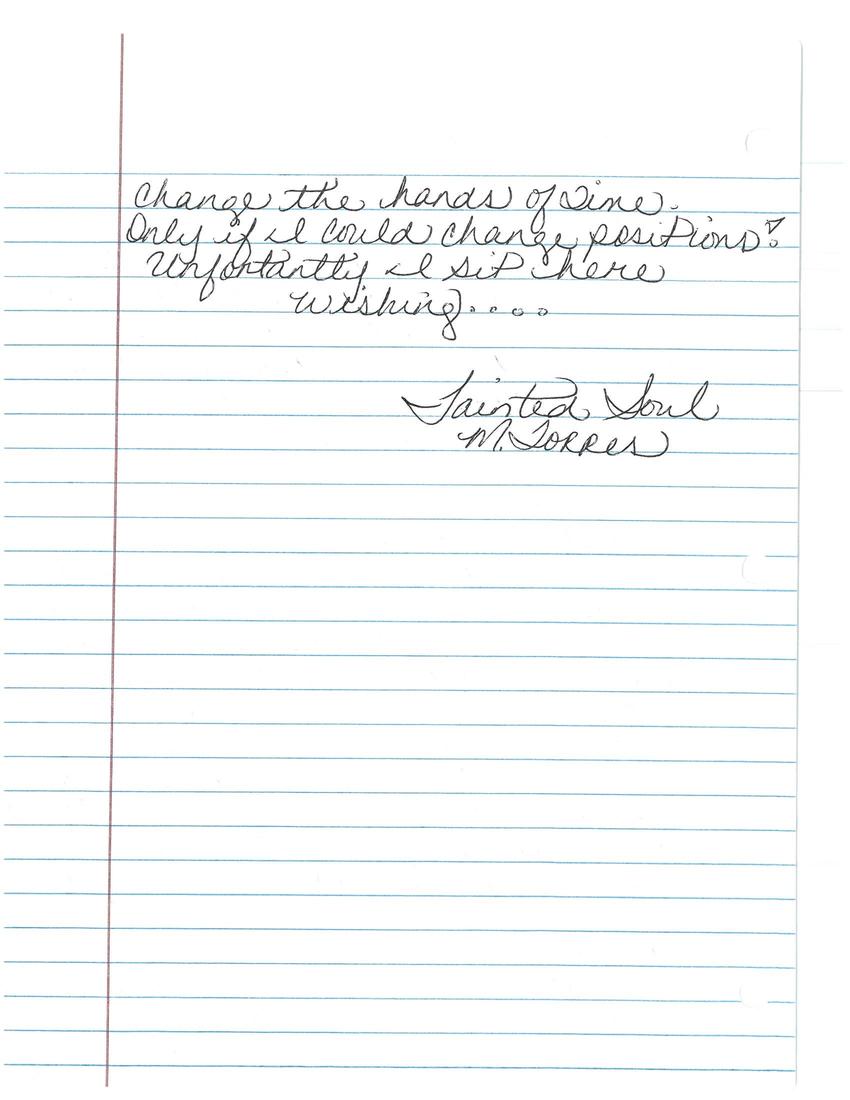 change the hands of time.
Only if I could change positions?
Unfortantly I sit here
wishing....
Tainted Soul
M. Torres